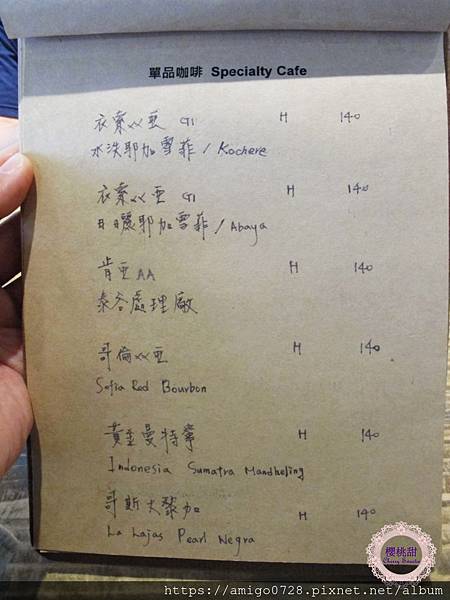 單品咖啡 Specialty Cafe
衣索ㄨ亞 G1 H 140
水洗耶加雪菲 / Kochere
衣索ㄨ亞 G1 H 140
日曬耶加雪菲 / Abaya
肯亞 AA H 140
泰谷處理廠
哥倫ㄨ亞 H 140
Sofia Red Bourbon
黃金曼特寧 H 140
Indonesia Sumatra Mandheling
哥斯大黎加 H 140
La Lajas Pearl Negra
櫻桃甜
https://amigo0728.pixnet.net/album